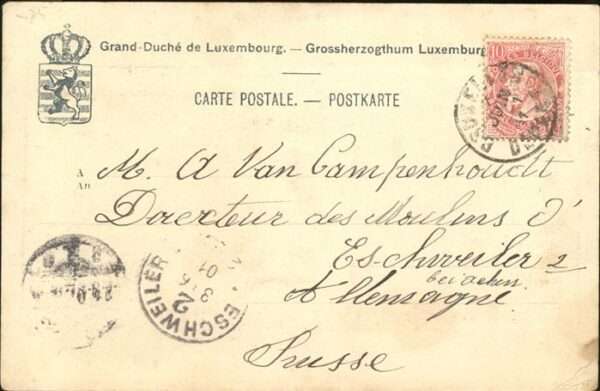 Grand-Duché de Luxembourg. — Grossherzogthum Luxemburg
10
CARTE POSTALE. — POSTKARTE
A
An
M. A Van Campenhoudt
Directeur des Moulins d'
Eschweiler 2
bei achen
Allemagne
Prusse
ESCHWEILER
2